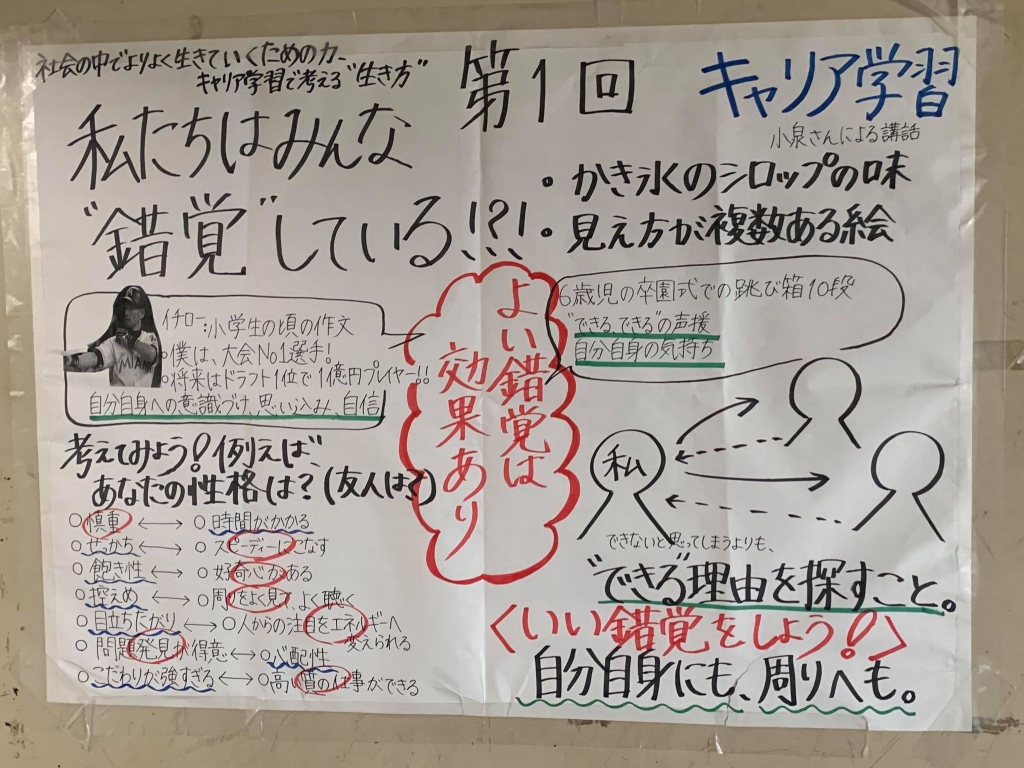 社会の中でよりよく生きていくための力、
キャリア学習で考える"生き方"
第1回
キャリア学習
小泉さんによる講話
私たちはみんな
"錯覚"している!?!
・かき氷のシロップの味
・見え方が複数ある絵
イチロー:小学生の頃の作文
○僕は、大会No1選手!
○将来はドラフト1位で1億円プレイヤー!!
自分自身への意識づけ、思い込み、自信
よい錯覚は
効果あり
6歳児の卒園式での跳び箱10段
"できる、できる"の声援
自分自身の気持ち
考えてみよう!例えば、
あなたの性格は?(友人は?)
○慎重 ⟷ ○時間がかかる
○せっかち ⟷ ○スピーディーにこなす
○飽き性 ⟷ ○好奇心がある
○控えめ ⟷ ○周りをよく見て、よく聴く
○目立ちたがり ⟷ ○人からの注目をエネルギーへ
変えられる
○問題発見が得意 ⟷ ○心配性
○こだわりが強すぎる ⟷ ○高い質の仕事ができる
私
できないと思ってしまうよりも、
"できる"理由を探すこと。
<いい錯覚をしよう!>
自分自身にも、周りへも。